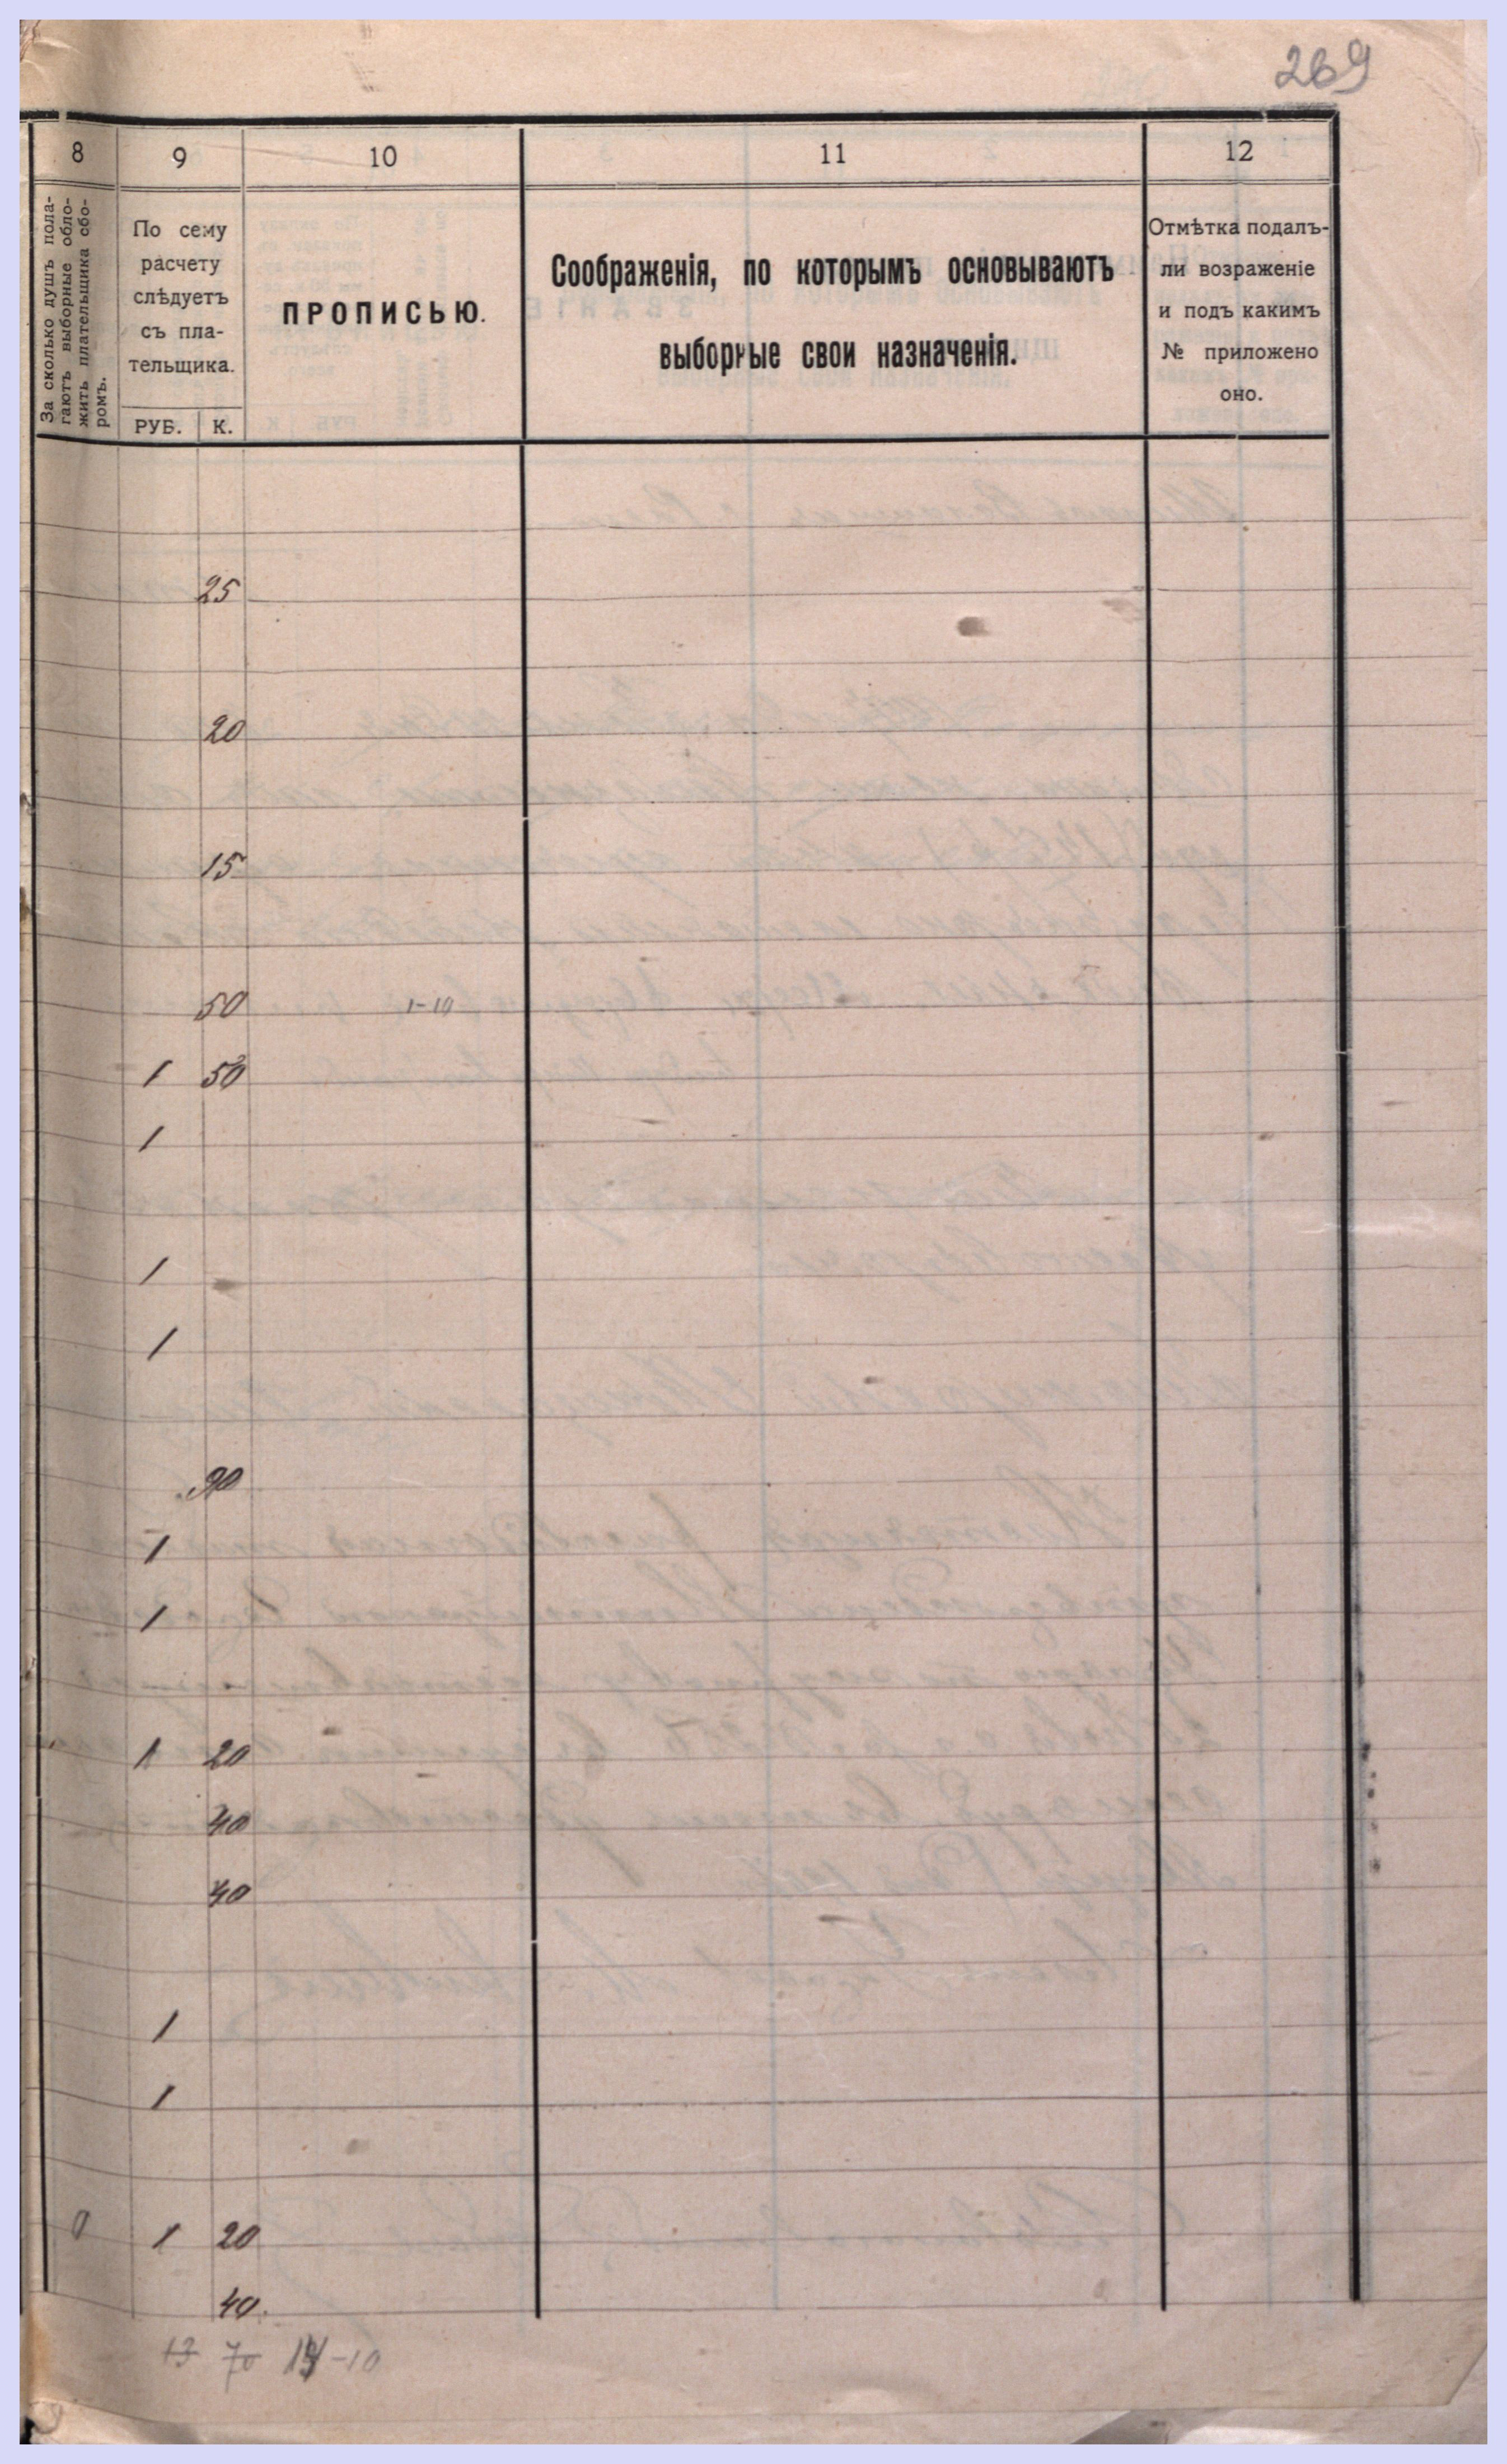 269
8 9 10 11 12
За сколько душъ пола-
гаютъ выборные обло-
жить плательщика сбо-
ромъ.
По сему
расчету
слѣдуетъ
съ пла-
тельщика.
РУБ. К.
ПРОПИСЬЮ.
Соображенія, по которымъ основываютъ
выборные свои назначенія.
Отмѣтка подалъ-
ли возраженіе
и подъ какимъ
№ приложено
оно.
25
20
15
50 1-10
1 50
1
1
1
90
1
1
1 20
40
40
1
1
0 1 20
40
13 70 14-10